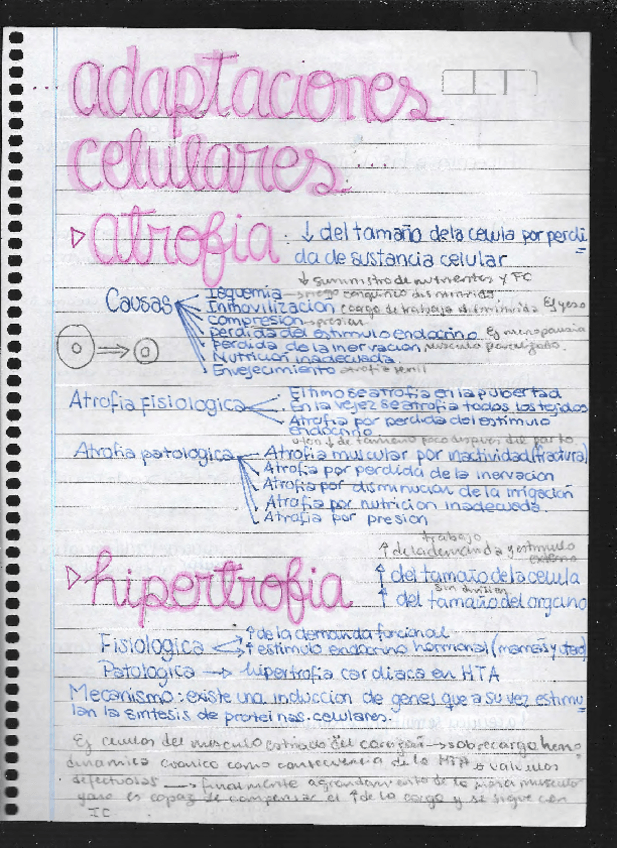 adaptaciones
celulares
atrofia · ↓ del tamaño de la celula por perdi-
da de sustancia celular
↓ suministro de nutrientes y FC
Causas
Isquemia → riego sanguineo disminuido
Inmovilizacion carga de trabajo disminuida Ej yeso
Compresion → presion
Perdida del estimulo endocrino Ej menopausia
Perdida de la inervacion musculo paralizado.
Nutricion inadecuada
Envejecimiento atrofia senil
Atrofia fisiologica
El timo se atrofia en la pubertad
En la vejez se atrofia todos los tejidos
Atrofia por perdida del estimulo
endocrino
utero ↓ de tamaño poco despues del parto
Atrofia patologica
Atrofia muscular por inactividad (fractura)
Atrofia por perdida de la inervacion
Atrofia por disminucion de la irrigacion
Atrofia por nutricion inadecuada
Atrofia por presion
trabajo
↑ de la demanda y estimulo
hipertrofia ↑ del tamaño de la celula
sin division
↑ del tamaño del organo
Fisiologica
↑ de la demanda funcional
↑ estimulo endocrino hormonal (mamas y utero)
Patologica → hipertrofia cardiaca en HTA
Mecanismo: existe una induccion de genes que a su vez estimu-
lan la sintesis de proteinas celulares.
Ej celulas del musculo estriado del corazon → sobrecarga hemo
dinamica cronica como consecuencia de la HTA o valvulas
defectuosas → finalmente agrandamiento de la masa muscular
ya no es capaz de compensar el ↑ de la carga y se sigue con
IC